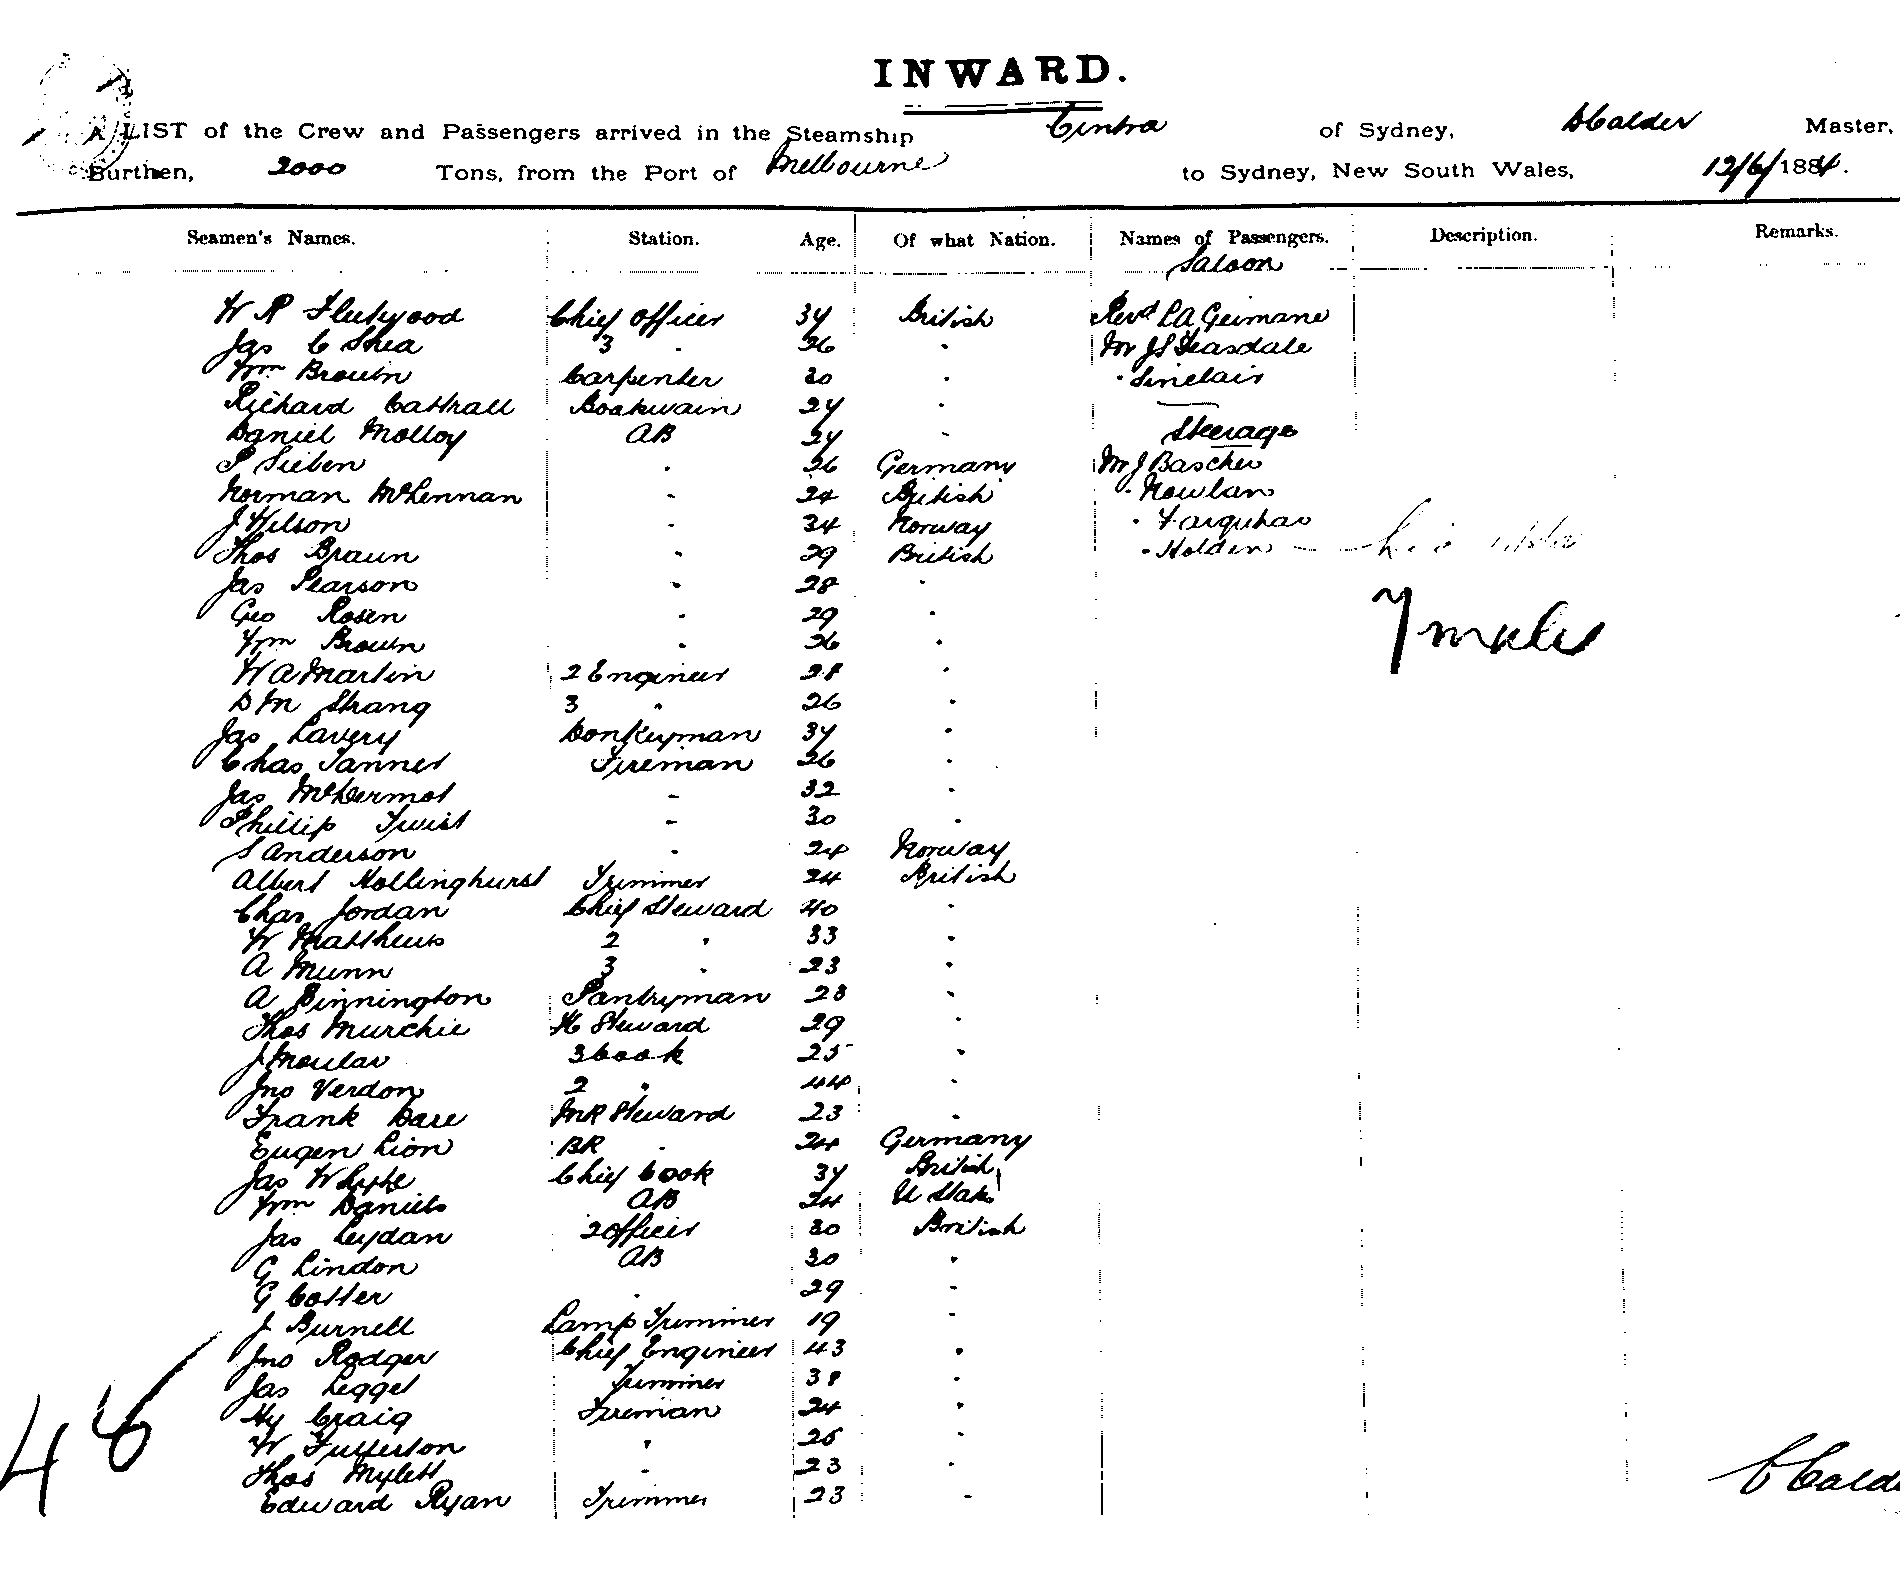 INWARD.
A LIST of the Crew and Passengers arrived in the Steamship Cintra of Sydney, D Calder Master,
Burthen, 2000 Tons, from the Port of Melbourne to Sydney, New South Wales, 12/6/1884.
Seamen's Names. Station. Age. Of what Nation. Names of Passengers. Description. Remarks.
Saloon
W R Fleetwood Chief Officer 34 British Revd
Jas C Shea 3 " 26 " Mr J S Teasdale
Wm Brown Carpenter 30 " " Sinclair
Richard Cattrall Boatswain 24 "
Daniel Molloy AB 24 " Steerage
P Sieben " 26 Germany Mr J Bascher
Norman McLennan " 24 British " Nowlan
J Wilson " 34 Norway " Farquhar
Thos Braun " 29 British " Holden
Jas Pearson " 28 "
Geo Rosen " 29 "
Wm Brown " 26 " 7 males
W A Martin 2 Engineer 28 "
D M Strang 3 " 26 "
Jas Lavery Donkeyman 34 "
Chas Tanner Fireman 26 "
Jas McDermot " 32 "
Phillip Twist " 30 "
S Anderson " 24 Norway
Albert Hollinghurst Trimmer 24 British
Chas Jordan Chief Steward 40 "
W Matthews 2 " 33 "
A Munn 3 " 23 "
A Binnington Pantryman 23 "
Thos Murchie Steward 29 "
J Moular 3 Cook 25 "
Jno Verdon 2 " 44 "
Frank Dare MR Steward 23 "
Eugen Lion BR " 24 Germany
Jas Whyte Chief Cook 34 British
Wm Daniels AB 24 U States
Jas Leydan 2 Officer 30 British
G Lindon AB 30 "
G Cotter " 29 "
J Burnell Lamp Trimmer 19 "
Jno Rodger Chief Engineer 43 "
Jas Legget Trimmer 38 "
Hy Craig Fireman 24 "
W Fullerton " 25 "
Thos Mylett " 23 "
Edward Ryan Trimmer 23 "
46